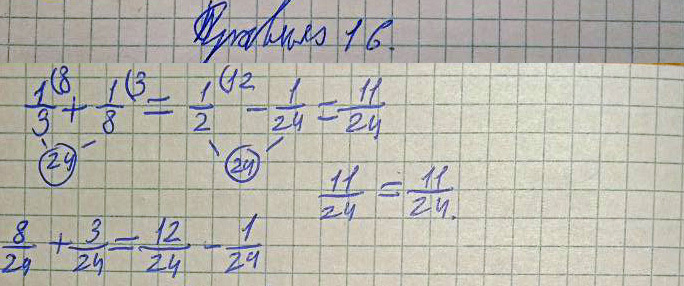 16.
1/3 (8 + 1/8 (3 = 1/2 (12 - 1/24 = 11/24
24 24
11/24 = 11/24.
8/24 + 3/24 = 12/24 - 1/24